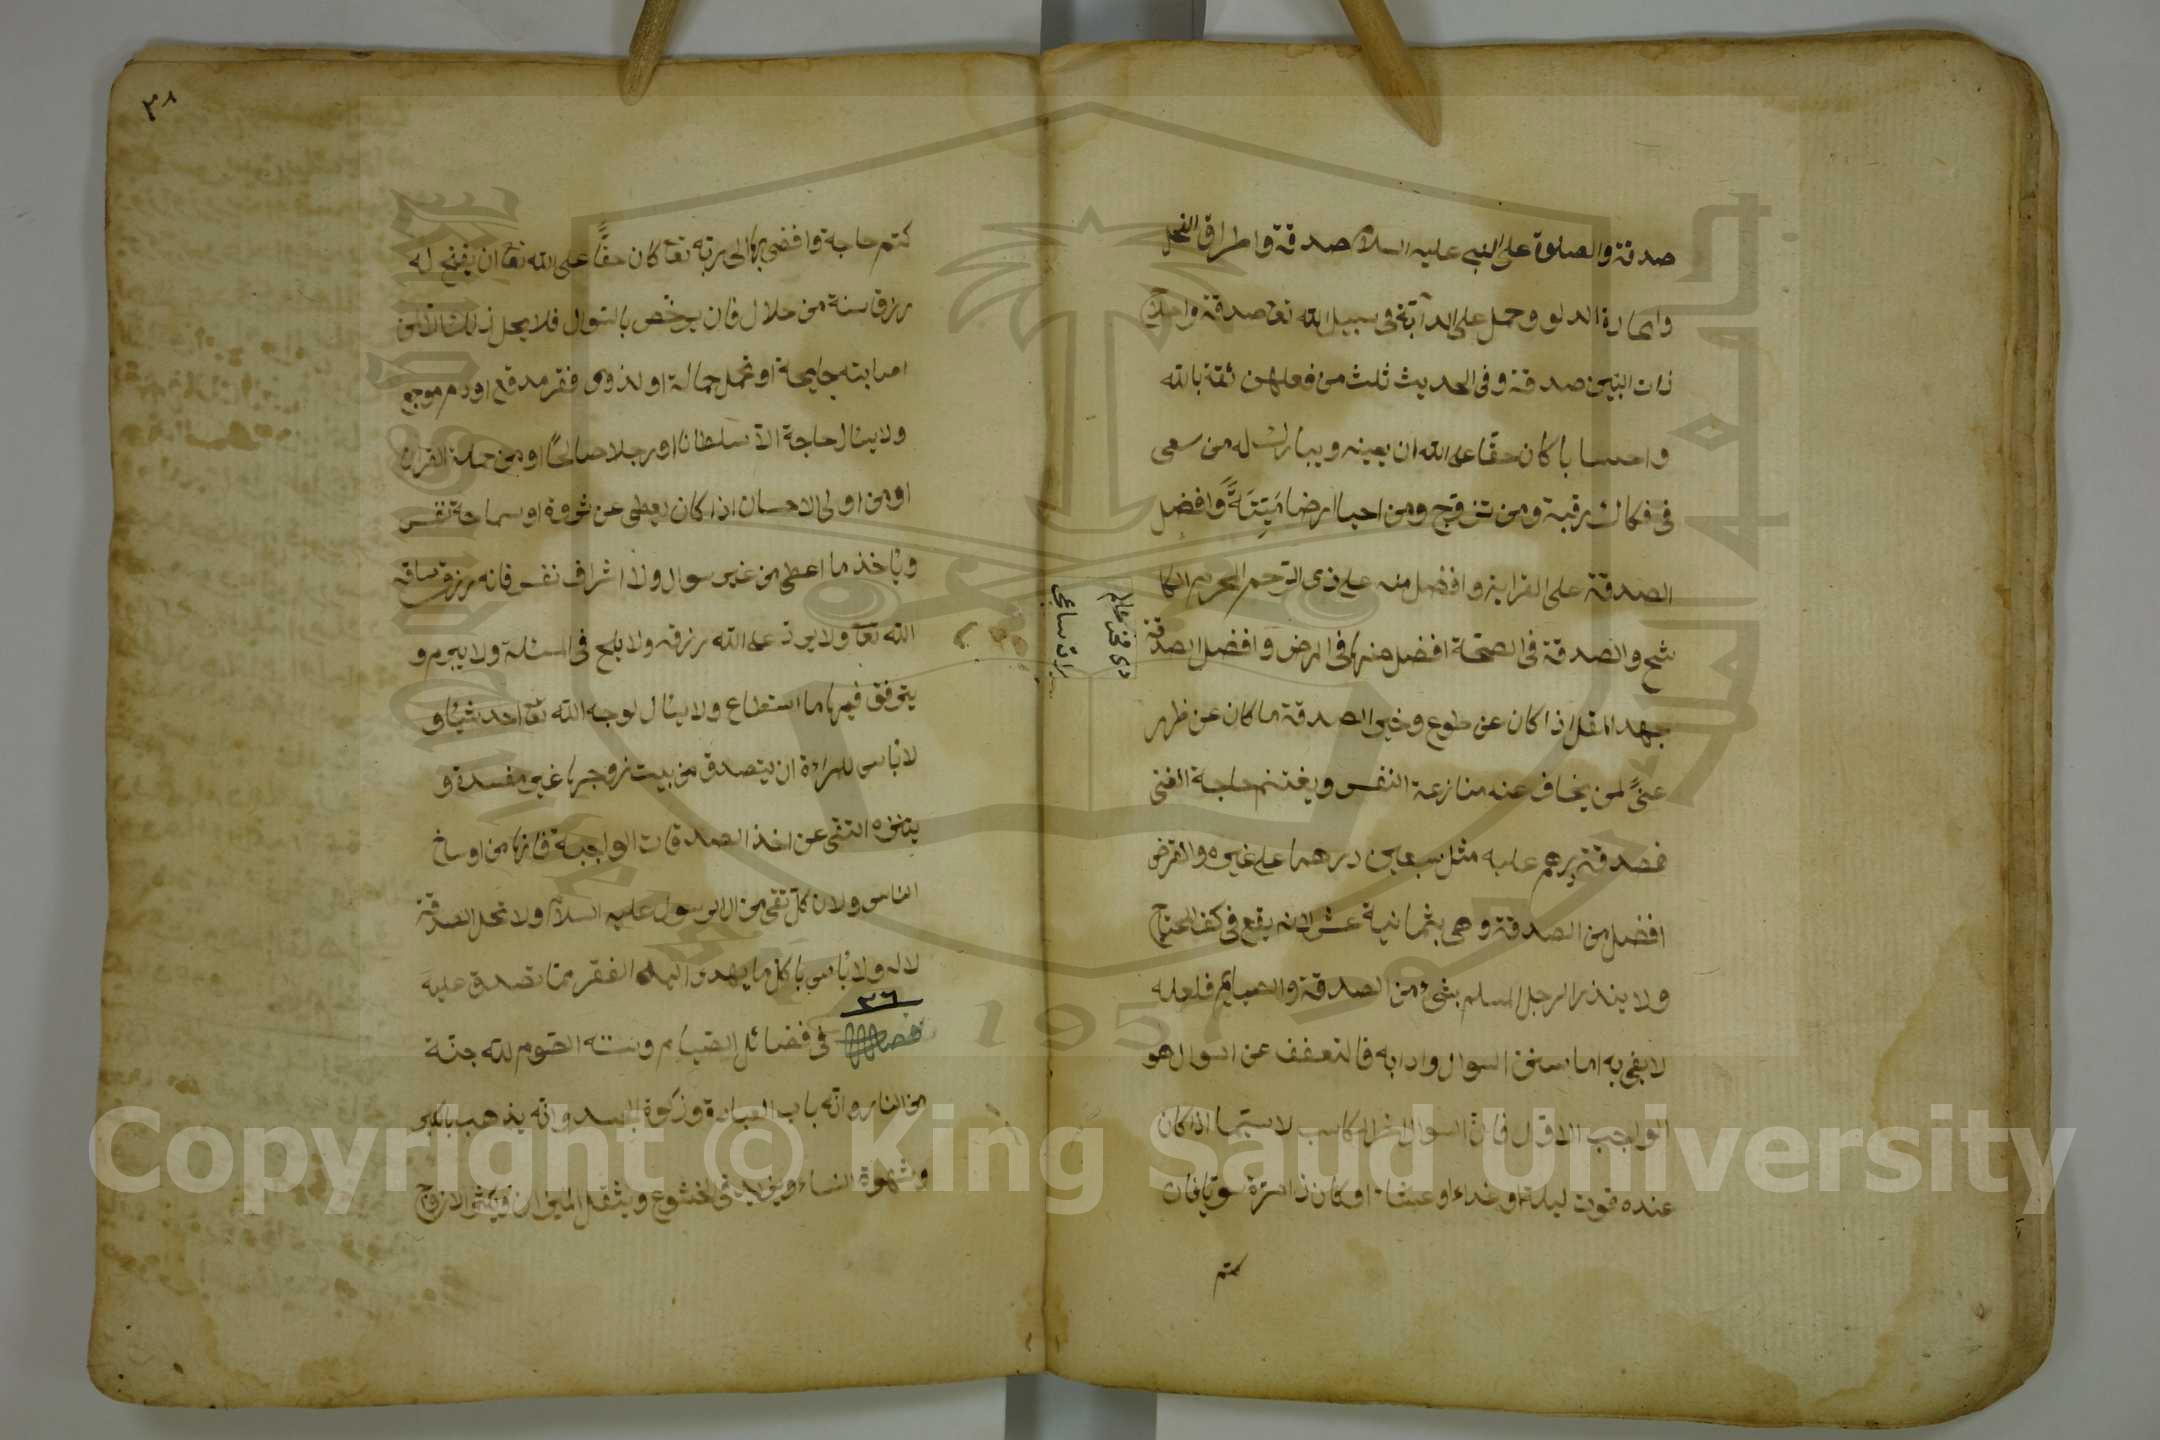 صدقة والصلوة على النبي عليه السلام صدقة واطراق الفحل
واعارة الدلو وحمل على الدآبة فى سبيل الله تعا صدقة واصلاح
ذات البين صدقة وفى الحديث ثلث من فعلهن ثقة بالله
واحتسابا كان حقا على الله ان يعينه ويبارك له من سعى
فى فكاك رقبة ومن تزوج ومن احيا ارضا ميتة وافضل
الصدقة على القرابة وافضل منه على ذى الرحم المحرم الكا
شح والصدقة فى الصحة افضل منها فى المرض وافضل الصدقة
جهد المقل اذا كان عن طوع وخير الصدقة ما كان عن ظهر
غنىً لمن يخاف عنه منازعة النفس ويغتنم حاجة الغنى
فصدقة درهم عليه مثل سبعين درهما على غيره والقرض
افضل من الصدقة وهى بثمانية عشر لانه يقع فى كف المحتاج
ولا ينذر الرجل المسلم بشئ من الصدقة والصيام فلعله
لا يفى به اما سنن السوال وادابه فالتعفف عن السوال هو
الواجب الاول فان السوال اخر المكاسب لا سيما اذا كان
عنده قوت ليلة او غداء او عشاء او كان ذا مرة سويا فان
كتم
٣٨
كتم حاجة وافضى بها الى ربه تعا كان حقاً على الله تعا ان يفتح له
رزق سنة من حلال فان يرخص بالسوال فلا يحل ذلك الا لمن
اصابته جايحة او تحمل حمالة او لذوى فقر مدقع او دم موجع
ولا يسال حاجة الا سلطانا او رجلا صالحا او من حملة القران
او من اولى الاحسان اذا كان يعطى عن ثروة او سماحة نفس
وياخذ ما اعطى من غير سوال ولا اشراف نفس فانه رزق ساقه
الله تعا ولا يرد على الله رزقه ولا يلح فى المسئلة ولا يبرم و
يترفق فيها ما استطاع ولا يسال لوجه الله تعا احد شيئا و
لا باس للمراة ان يتصدق من بيت زوجها غير مفسدة و
يتنزه التقى عن اخذ الصدقات الواجبة فانها من اوساخ
الناس ولان كل تقى من ال الرسول عليه السلام ولا تحل الصدقة
لاله ولا باس باكل ما يهدى اليه الفقر مما تصدق عليه
٣٦
فصل فى فضائل الصيام وسننه الصوم لله جنة
من النار وانه باب العبادة وزكوة الجسد وانه يذهب بالكبر
وشهوة النساء ويزيد فى الخشوع ويثقل الميزان ويكثر الازوج
Copyright © King Saud University
1957